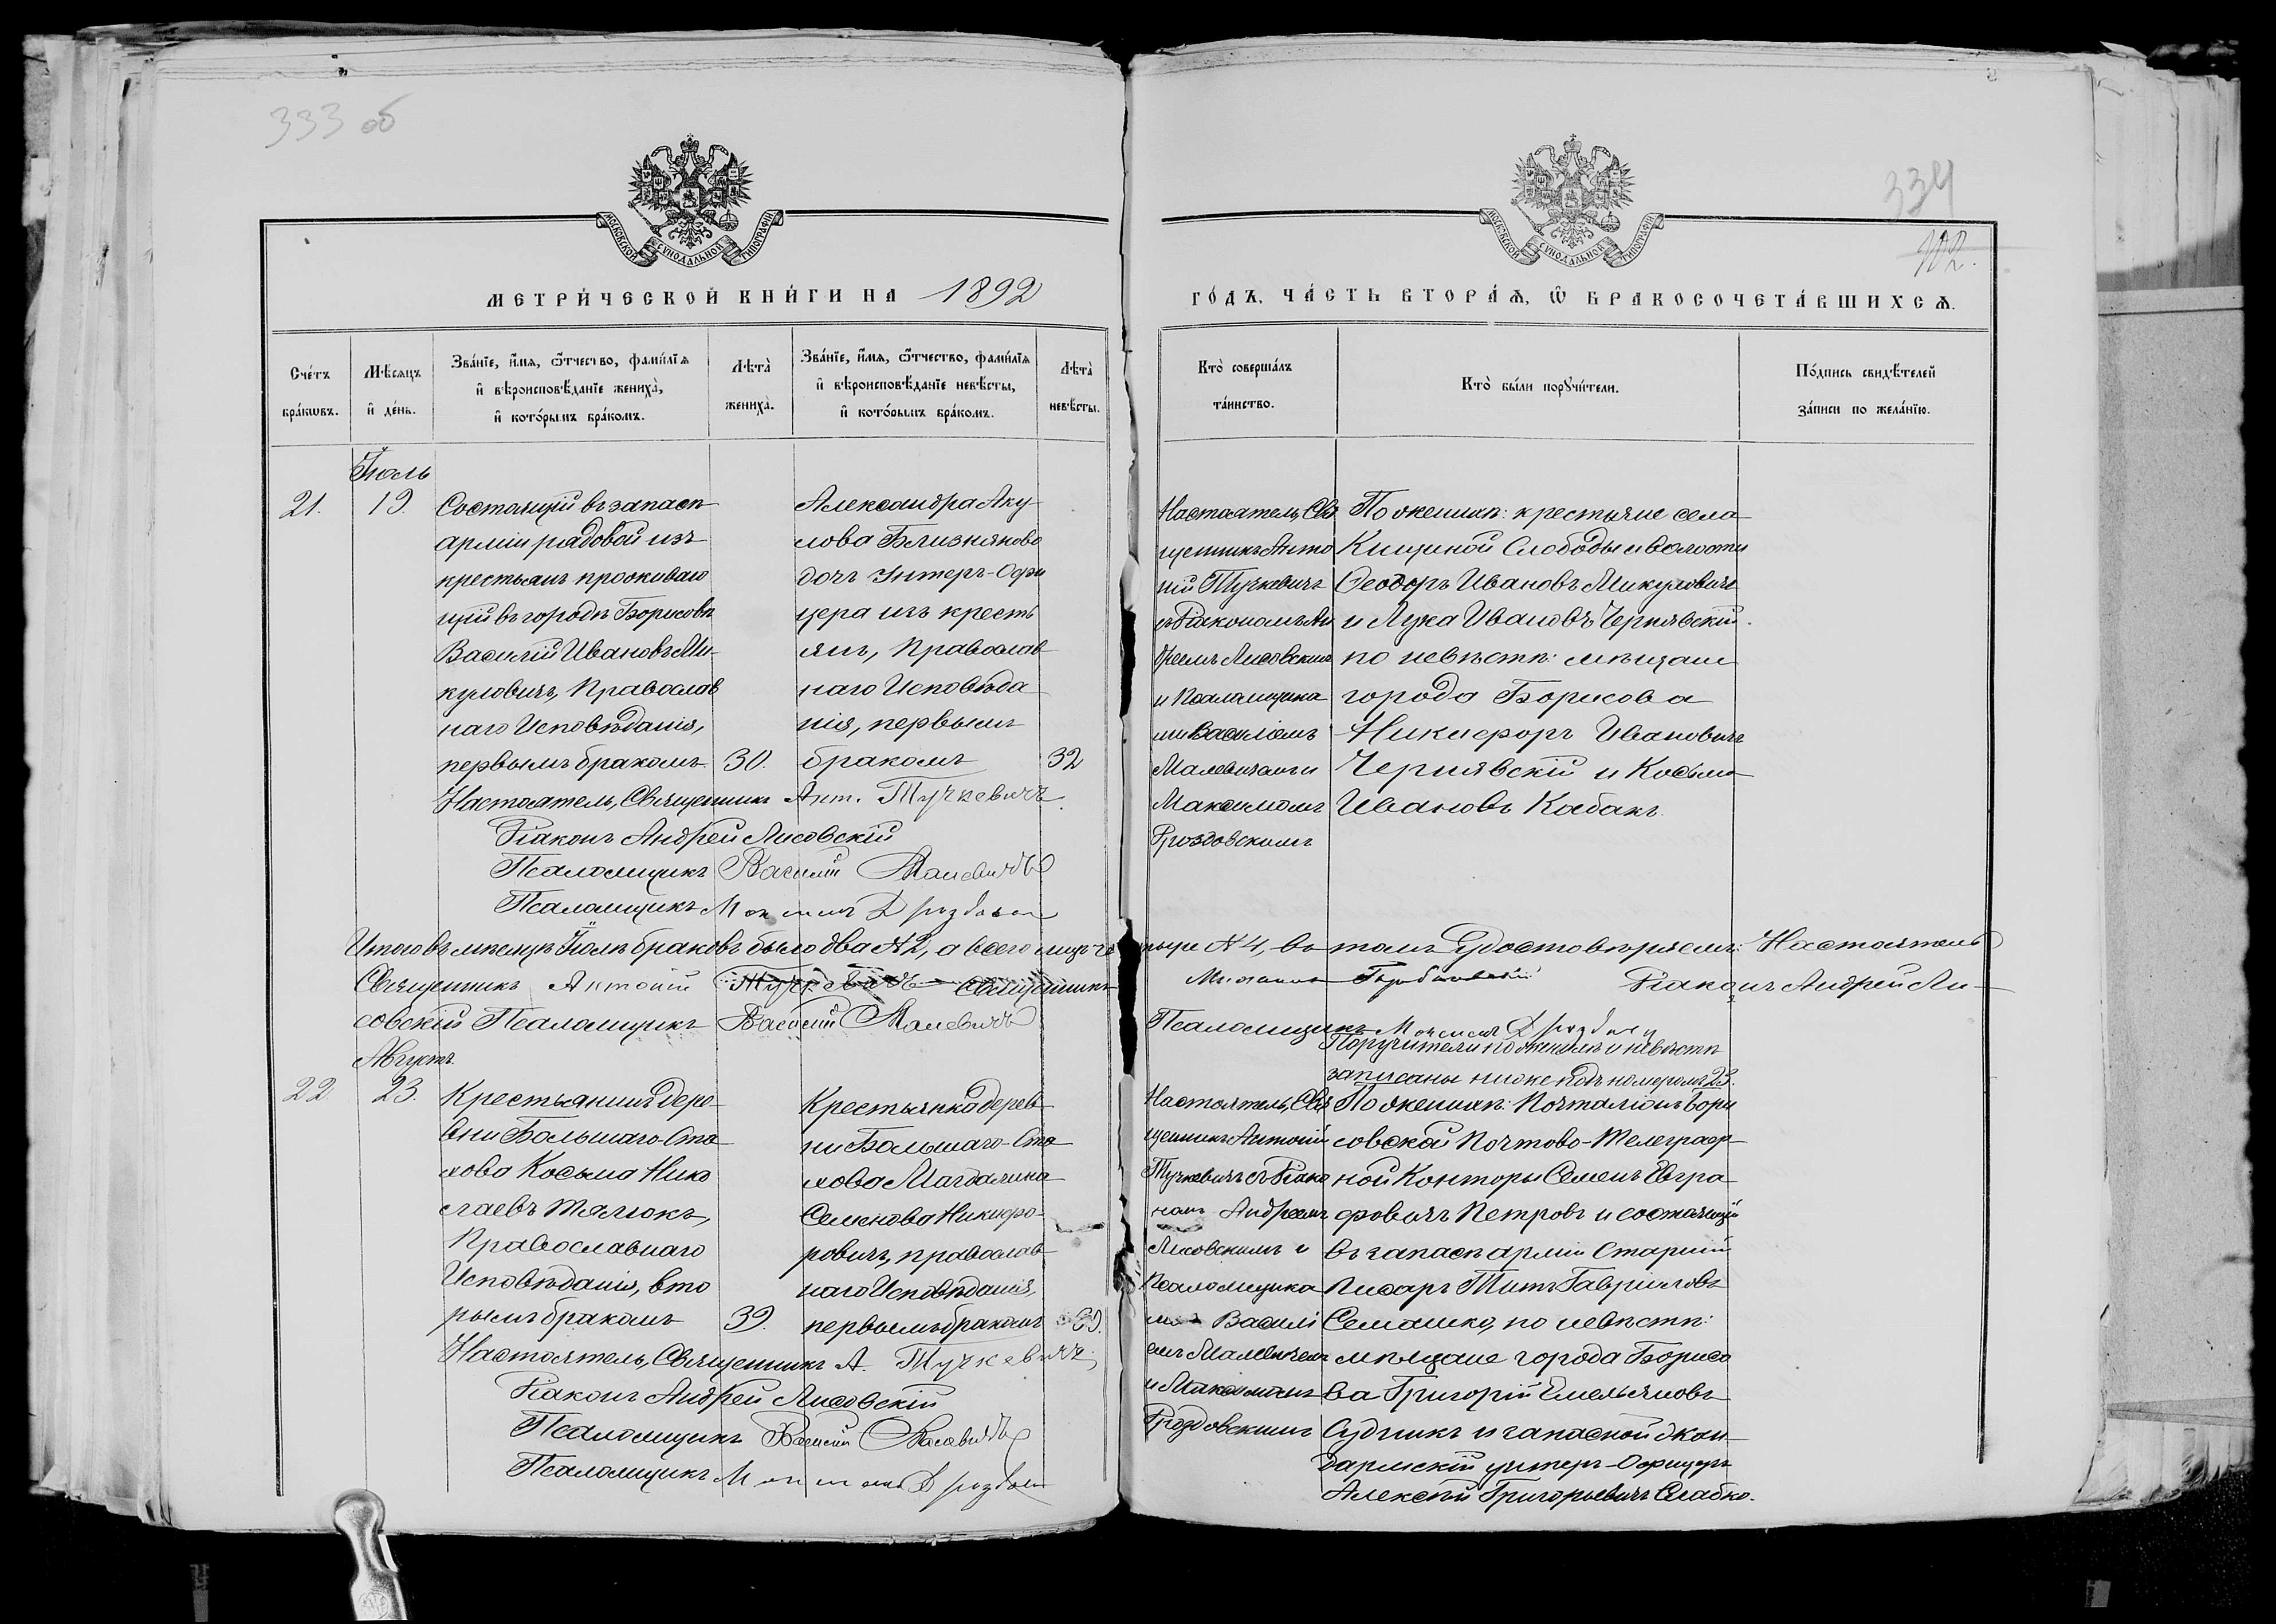 333 об
МОСКОВСКОЙ СУНОДАЛЬНОЙ ТИПОГРАФІИ
МЕТРИ́ЧЕСКОЙ КНИ́ГИ НА 1892
Сче́тъ бра́кѡвъ.
Мѣ́сяцъ и҆ де́нь.
Зва́нїе, и҆́мѧ, ѻ҆́тчество, фами́лїѧ и҆ вѣроисповѣ́данїе жениха̀, и҆ кото́рымъ бра́комъ.
Лѣта̀ жениха̀.
Зва́нїе, и҆́мѧ, ѻ҆́тчество, фами́лїѧ и҆ вѣроисповѣ́данїе невѣ́сты, и҆ кото́рымъ бра́комъ.
Лѣта̀ невѣ́сты.
Іюль
21.
19.
Состоящій въ запасѣ
арміи рядовой изъ
крестьянъ проживаю
щій въ городѣ Борисовѣ
Василій Ивановъ Ми-
куловичъ, Православ
наго Исповѣданія,
первымъ бракомъ.
30.
Александра Аку-
лова Близнякова
дочь Унтеръ-Офи
цера изъ кресть
янъ, Православ
наго Исповѣда
нія, первымъ
бракомъ
32
Настоятель, Священникъ Ант. Тучкевичъ.
Діаконъ Андрей Лисовскій
Псаломщикъ Василій Малевичъ
Псаломщикъ Максимъ
Итого въ мѣсяцѣ Іюлѣ браковъ было два № 2, а всего лицъ че
Священникъ Антоній Тучкевичъ Священникъ
совскій Псаломщикъ Василій Малевичъ
Августъ
22
23.
Крестьянинъ дере-
вни Большаго-Ста
хова Косьма Нико
лаевъ Тялюкъ,
Православнаго
Исповѣданія, вто
рымъ бракомъ
39.
Крестьянка дерев-
ни Большаго-Ста
хова Магдалина
Семенова Никифо-
ровичъ, православ-
наго Исповѣданія,
первымъ бракомъ
Настоятель, Священникъ А. Тучкевичъ
Діаконъ Андрей Лисовскій
Псаломщикъ Василій Малевичъ
Псаломщикъ
334
102.
МОСКОВСКОЙ СУНОДАЛЬНОЙ ТИПОГРАФІИ
ГО́ДЪ, ЧА́СТЬ ВТОРА́Ѧ, Ѡ҆ БРАКОСОЧЕТА́ВШИХСѦ.
Кто̀ соверша́лъ та́инство.
Кто̀ бы́ли порꙋчи́тели.
По́дпись свидѣ́телей за́писи по жела́нїю.
Настоятель, Свя
щенникъ Анто
ній Тучкевичъ
съ Діакономъ Ан
дреемъ Лисовскимъ
и Псаломщика
ми Василіемъ
Малевичемъ и
Максимомъ
Дроздовскимъ
По женихѣ: крестьяне села
Кищиной Слободы и волости
Ѳеодоръ Ивановъ Микуловичъ
и Лука Ивановъ Чернявскій.
по невѣстѣ: мѣщане
города Борисова
Никифоръ Ивановичъ
Чернявскій и Косьма
Ивановъ Кабакъ.
тыре № 4, въ томъ удостовѣряемъ: Настоятель
Михаилъ Діаконъ Андрей Ли-
Псаломщикъ Максимъ
Поручители по женихѣ и невѣстѣ
записаны ниже подъ номеромъ 23.
Настоятель, Свя
щенникъ Антоній
Тучкевичъ съ Діако
номъ Андреемъ
Лисовскимъ и
Псаломщика
ми Василі
емъ Малевичемъ
и Максимомъ
Дроздовскимъ
По женихѣ: Почталіонъ Бори
совской Почтово-Телеграф-
ной Конторы Семенъ Евгра-
фовичъ Петровъ и состоящій
въ запасѣ арміи Старшій
Писарь Титъ Гавріиловъ
Семашко, по невѣстѣ:
мѣщане города Борисо
ва Григорій Емельяновъ
Судникъ и запасной жан-
дармскій унтеръ-Офицеръ
Алексѣй Григорьевичъ Слабко.